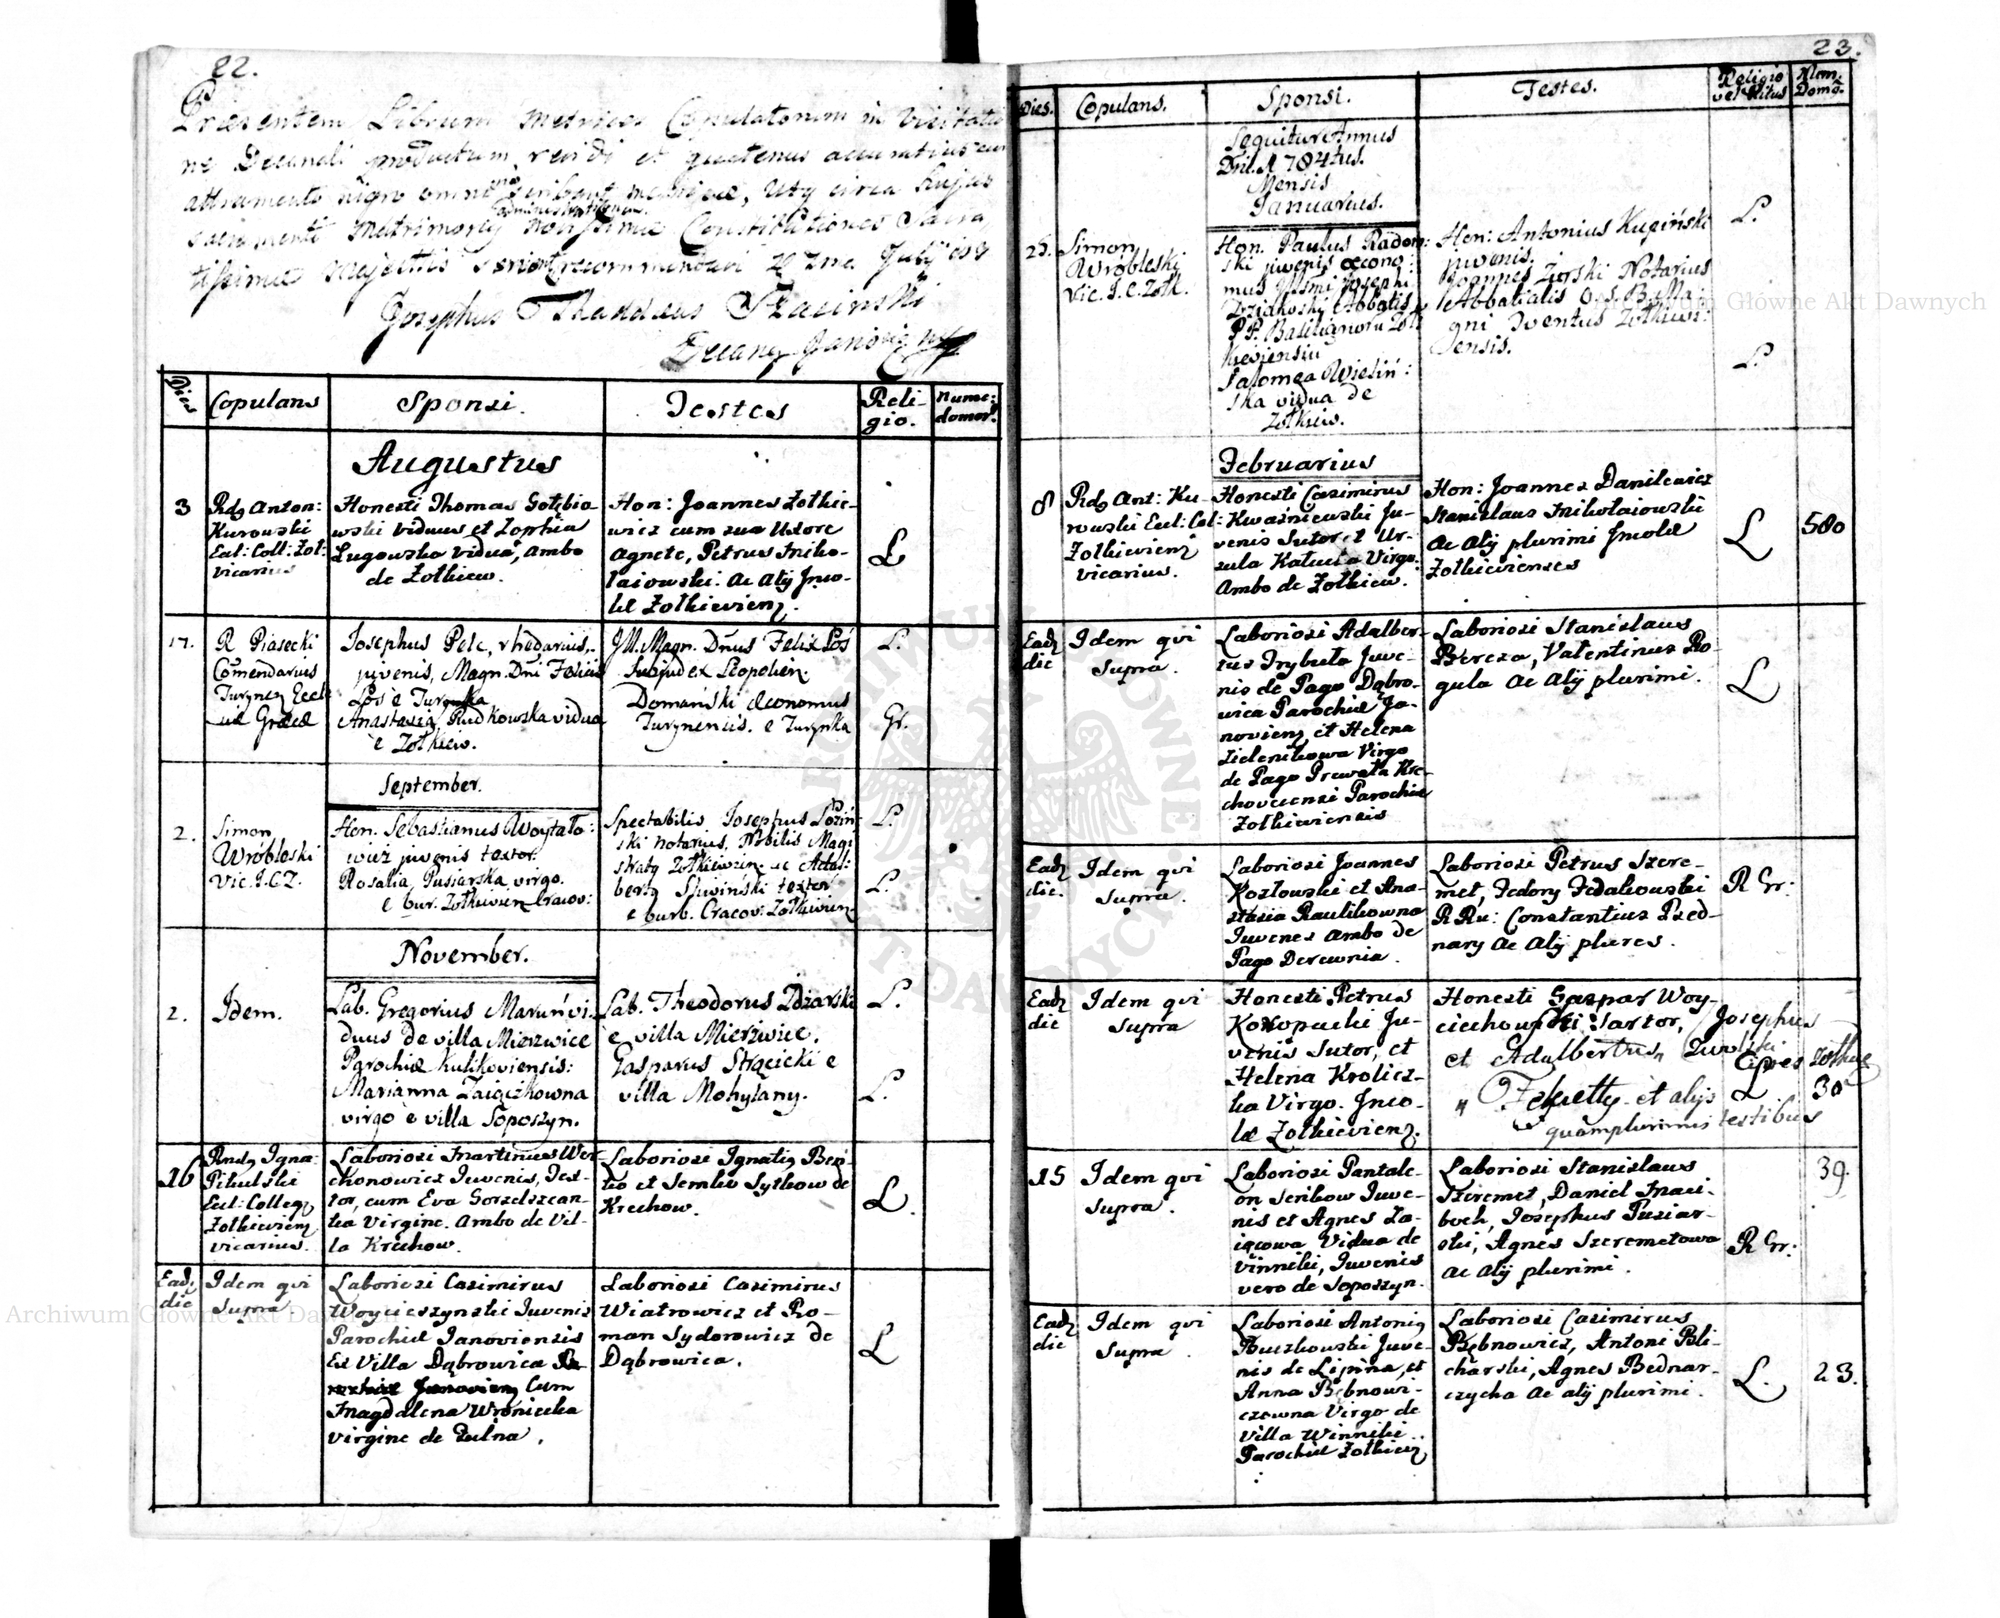 22.
Præsentem Librum Metrices Copulatorum in Visitatio
ne Decanali productum, revidi et quatenus accuratius cum
attramento nigro omnes scribant metrices, uti circa hujus
sacramenti Matrimonij administrationem novissimæ Constitutiones Sacra
tissimæ Majestis
Josephus Thaddæus
Decanus
Dies
Copulans
Sponsi.
Testes
Reli-
gio.
Nume:
domor:
Augustus
3
Rds Anton:
Kurowski
Ecl: Coll: Zol:
vicarius
Honesti Thomas Gołębio-
wski viduus et Zophia
Ługowska vidua, ambo
de Żołkiew.
Hon: Joannes Żołkie-
wicz cum sua Uxore
Agnete, Petrus Miko-
łaiowski. Ac Alij Inco-
læ Żołkievienz.
L
17.
R Piasecki
Comendarius
Turynen Eccle
siæ Græcæ
Josephus Pelc, rhedarius,
juvenis, Magn. Dni Felicis
Łoś è Turynka
Anastasia Rudkowska vidua
è Żołkiew.
Ill. Magn. Dnus Felix Łoś
Subjudex Leopolien.
Domański Œconomus
Turynensis. e Turynka
L.
Gr.
September.
2.
Simon
Wróbleski
Vic. I. C. Z.
Hon. Sebastianus Woytało:
wicz juvenis textor.
Rosalia, Pusiarska virgo.
e bur. Żołkievien Cracov:
Spectabilis Josephus Łoziń-
ski notarius, Nobilis Magi
straty Żołkiewien. ac Adal:
berty Śliwiński textor
e burb. Cracov: Żołkiewien.
L.
L.
November.
2.
Idem.
Lab. Gregorius Maruń vi-
duus de villa Mierzwice
Parochiæ Kulikoviensis:
Marianna Zaiączkowna
virgo è villa Soposzyn.
Lab. Theodorus Zdżarski
è villa Mierzwice.
Gasparus Strącicki e
villa Mohyłany.
L.
L.
16
Rnds Igna:
Pikulski
Ecl: Colleg
Żołkievienz
vicarius.
Laboriosi Martinus Wer-
chonowicz Juvenis, Tex-
tor, cum Eva Gorzelszcan-
ka Virgine. Ambo de Vil-
la Krechow.
Laboriosi Ignatis Beń-
ko et Semko Sytkow de
Krechow.
L.
Ead.
die
Idem qvi
Supra
Laboriosi Casimirus
Woycieszynski Juvenis
Parochiæ Janoviensis
Ex Villa Dąbrowica
Cum
Magdalena Wronicka
virgine de Pulna.
Laboriosi Casimirus
Wiatrowicz et Ro-
man Sydorowicz de
Dąbrowica.
L
23.
Dies.
Copulans.
Sponsi.
Testes.
Religio
vel Ritus
Num.
Domo.
Sequitur Annus
Dni. 1784tus.
Mensis
Januarius.
25.
Simon
Wróbleski
Vic. I. C. Żołk.
Hon. Paulus Radom:
ski juvenis œcono:
mus Illsmi Josephi
Abbatis
PP. Basilianoru Żoł
kieviensiu
Salomea Wieliń:
ska vidua de
Żołkiew.
Hon: Antonius Kuziński
juvenis.
Joannes Żurski Notarius
Abbatialis
Żołkiewi:
ensis.
L.
L.
Februarius
8
Rds Ant: Ku-
rowski Ecl: Col:
Żołkievienz
vicarius.
Honesti Casimirus
Kwaśniewski Ju-
venis Sutor, et Ur-
sula Kałucka Virgo.
Ambo de Żołkiew.
Hon: Joannes Danilewicz
Stanislaus Mikołaiowski
Ac Alij plurimi Incolæ
Żołkievienses
L
580
Ead
die
Idem qvi
Supra.
Laboriosi Adalber-
tus Trybuła Juve-
nis de Pago Dąbro-
wica Parochiæ Ja-
novienz, et Helena
Zielenikowa Virgo
de Pago Przewała Kre-
choveensi Parochiæ
Żołkieviensis
Laboriosi Stanislaus
Bereza, Valentinus Ro-
gula Ac Alij plurimi.
L
Ead
die.
Idem qvi
Supra.
Laboriosi Joannes
Kozłowski et Ana-
stasia Raulikowna
Juvenes ambo de
Pago Derewnia.
Laboriosi Petrus Szere-
met, Fedory Fedakowski
R Ru: Constantius Pred-
nary Ac Alij plures.
R Gr:
Ead
die
Idem qvi
Supra
Honesti Petrus
Konopacki Ju-
venis Sutor, et
Helena Krolicz-
ka Virgo. Inco-
læ Żołkievienz.
Honesti Gaspar Woy-
ciechowski: Sartor, Josephus
et Adalbertus
Feketty et alijs
quamplurimis testibus
L
30
15
Idem qvi
Supra.
Laboriosi Pantale-
on Seribow Juve-
nis et Agnes Za-
iącowa Vidua de
Vinniki, Juvenis
vero de Soposzyn.
Laboriosi Stanislaus
Szeremet, Daniel Maci-
boch, Josephus Pusiar-
ski, Agnes Szeremetowa
Ac Alij plurimi.
R Gr:
39.
Ead
die
Idem qvi
Supra
Laboriosi Antonis
Buczkowski Juve-
nis de Lipina, et
Anna Bębnowi-
czowna Virgo de
Villa Winniki.
Parochiæ Żołkiew
Laboriosi Casimirus
Bębnowicz, Antoni Bli-
charski, Agnes Bednar-
czycha Ac alij plurimi.
L.
23.
Archiwum Główne Akt Dawnych
Archiwum Główne Akt Dawnych
ARCHIWUM GŁÓWNE AKT DAWNYCH